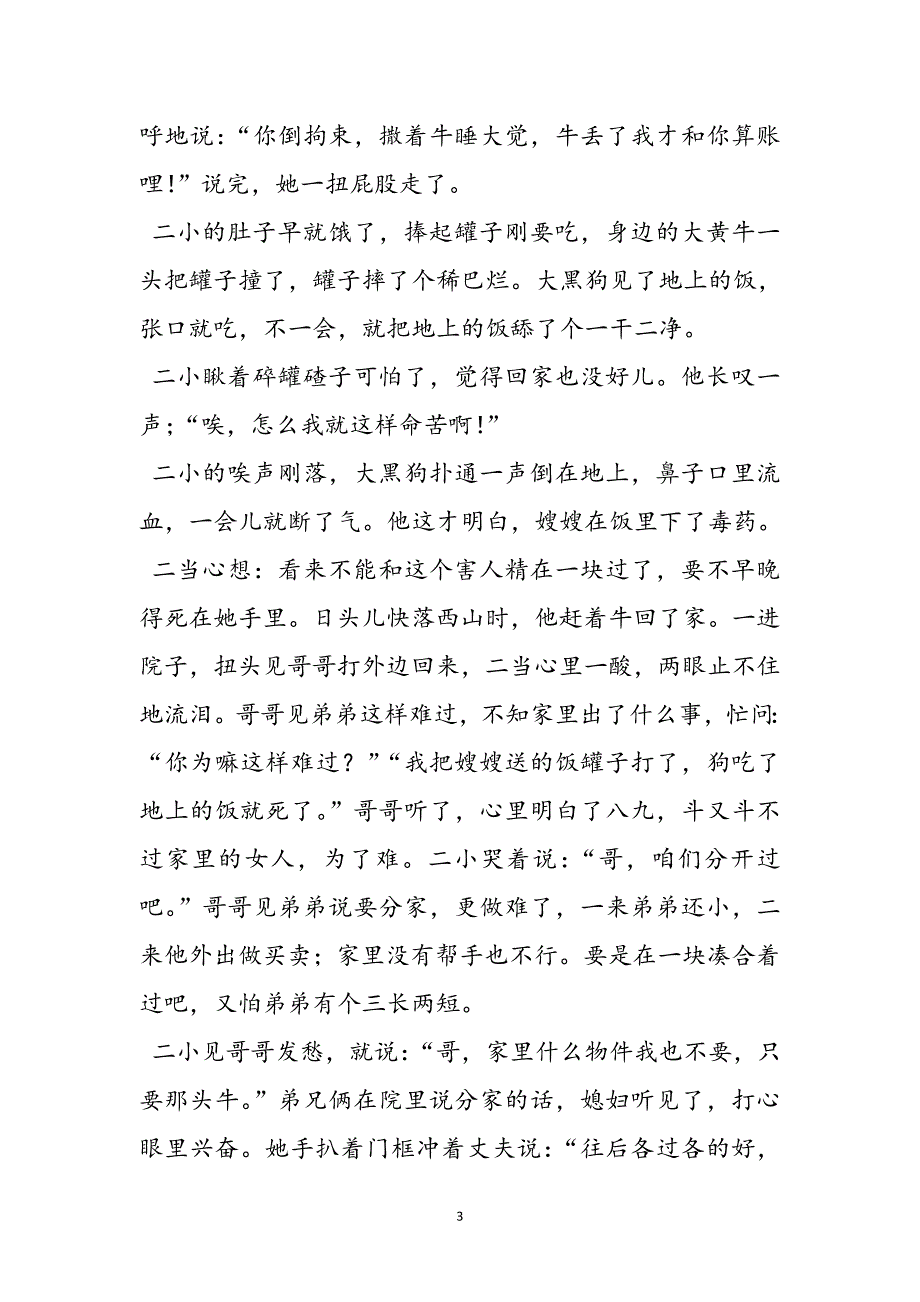 呼地说：“你倒拘束，撒着牛睡大觉，牛丢了我才和你算账
哩！”说完，她一扭屁股走了。
二小的肚子早就饿了，捧起罐子刚要吃，身边的大黄牛一
头把罐子撞了，罐子摔了个稀巴烂。大黑狗见了地上的饭，
张口就吃，不一会，就把地上的饭舔了个一干二净。
二小瞅着碎罐碴子可怕了，觉得回家也没好儿。他长叹一
声；“唉，怎么我就这样命苦啊！”
二小的唉声刚落，大黑狗扑通一声倒在地上，鼻子口里流
血，一会儿就断了气。他这才明白，嫂嫂在饭里下了毒药。
二当心想：看来不能和这个害人精在一块过了，要不早晚
得死在她手里。日头儿快落西山时，他赶着牛回了家。一进
院子，扭头见哥哥打外边回来，二当心里一酸，两眼止不住
地流泪。哥哥见弟弟这样难过，不知家里出了什么事，忙问：
“你为嘛这样难过？”“我把嫂嫂送的饭罐子打了，狗吃了
地上的饭就死了。”哥哥听了，心里明白了八九，斗又斗不
过家里的女人，为了难。二小哭着说：“哥，咱们分开过
吧。”哥哥见弟弟说要分家，更做难了，一来弟弟还小，二
来他外出做买卖；家里没有帮手也不行。要是在一块凑合着
过吧，又怕弟弟有个三长两短。
二小见哥哥发愁，就说：“哥，家里什么物件我也不要，只
要那头牛。”弟兄俩在院里说分家的话，媳妇听见了，打心
眼里兴奋。她手扒着门框冲着丈夫说：“往后各过各的好，
3